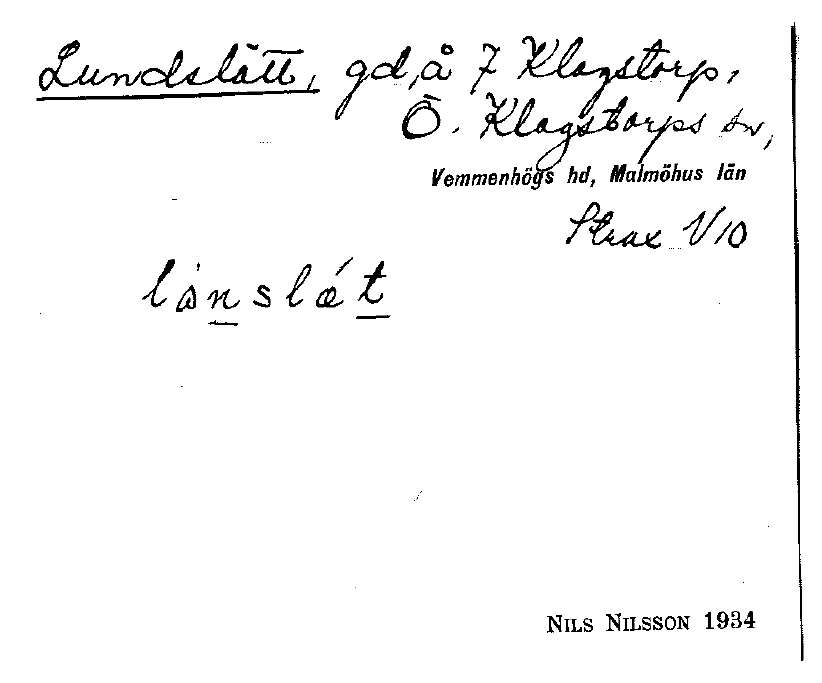 Lundslätt, gd, å 7 Klagstorp,
Ö. Klagstorps sn,
Vemmenhögs hd, Malmöhus län
Strax V 10
lånslǽt
NILS NILSSON 1934